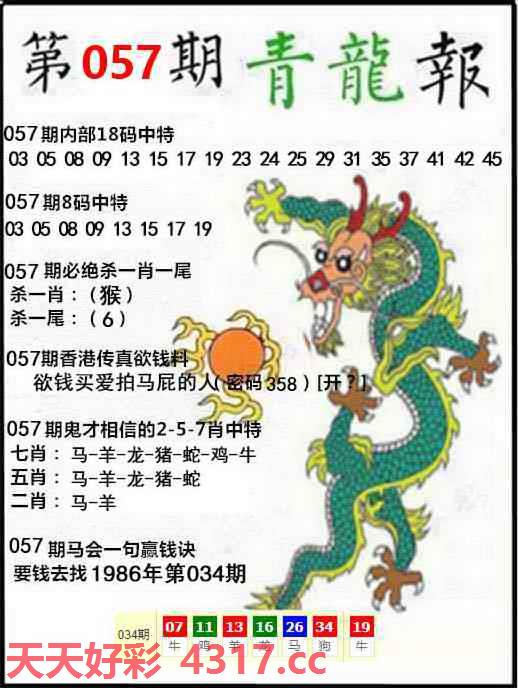 第057期 青龍報
057期内部18码中特
03 05 08 09 13 15 17 19 23 24 25 29 31 35 37 41 42 45
057期8码中特
03 05 08 09 13 15 17 19
057期必绝杀一肖一尾
杀一肖：（猴）
杀一尾：（6）
057期香港传真欲钱料
欲钱买爱拍马屁的人（密码358）[开？]
057期鬼才相信的2-5-7肖中特
七肖：马-羊-龙-猪-蛇-鸡-牛
五肖：马-羊-龙-猪-蛇
二肖：马-羊
057期马会一句赢钱诀
要钱去找1986年第034期
034期 07 11 13 16 26 34 19
牛 鸡 羊 龙 马 狗 牛
天天好彩 4317.cc